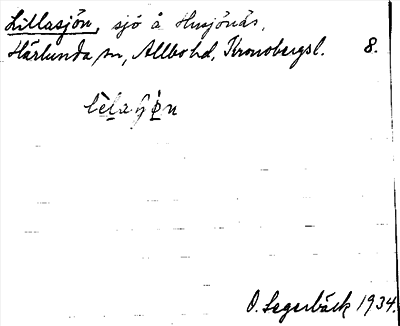 Lillasjön, sjö å Husjönäs,
Härlunda sn, Allbo hd, Kronobergs l. 8.
O. Lagerbäck 1934.